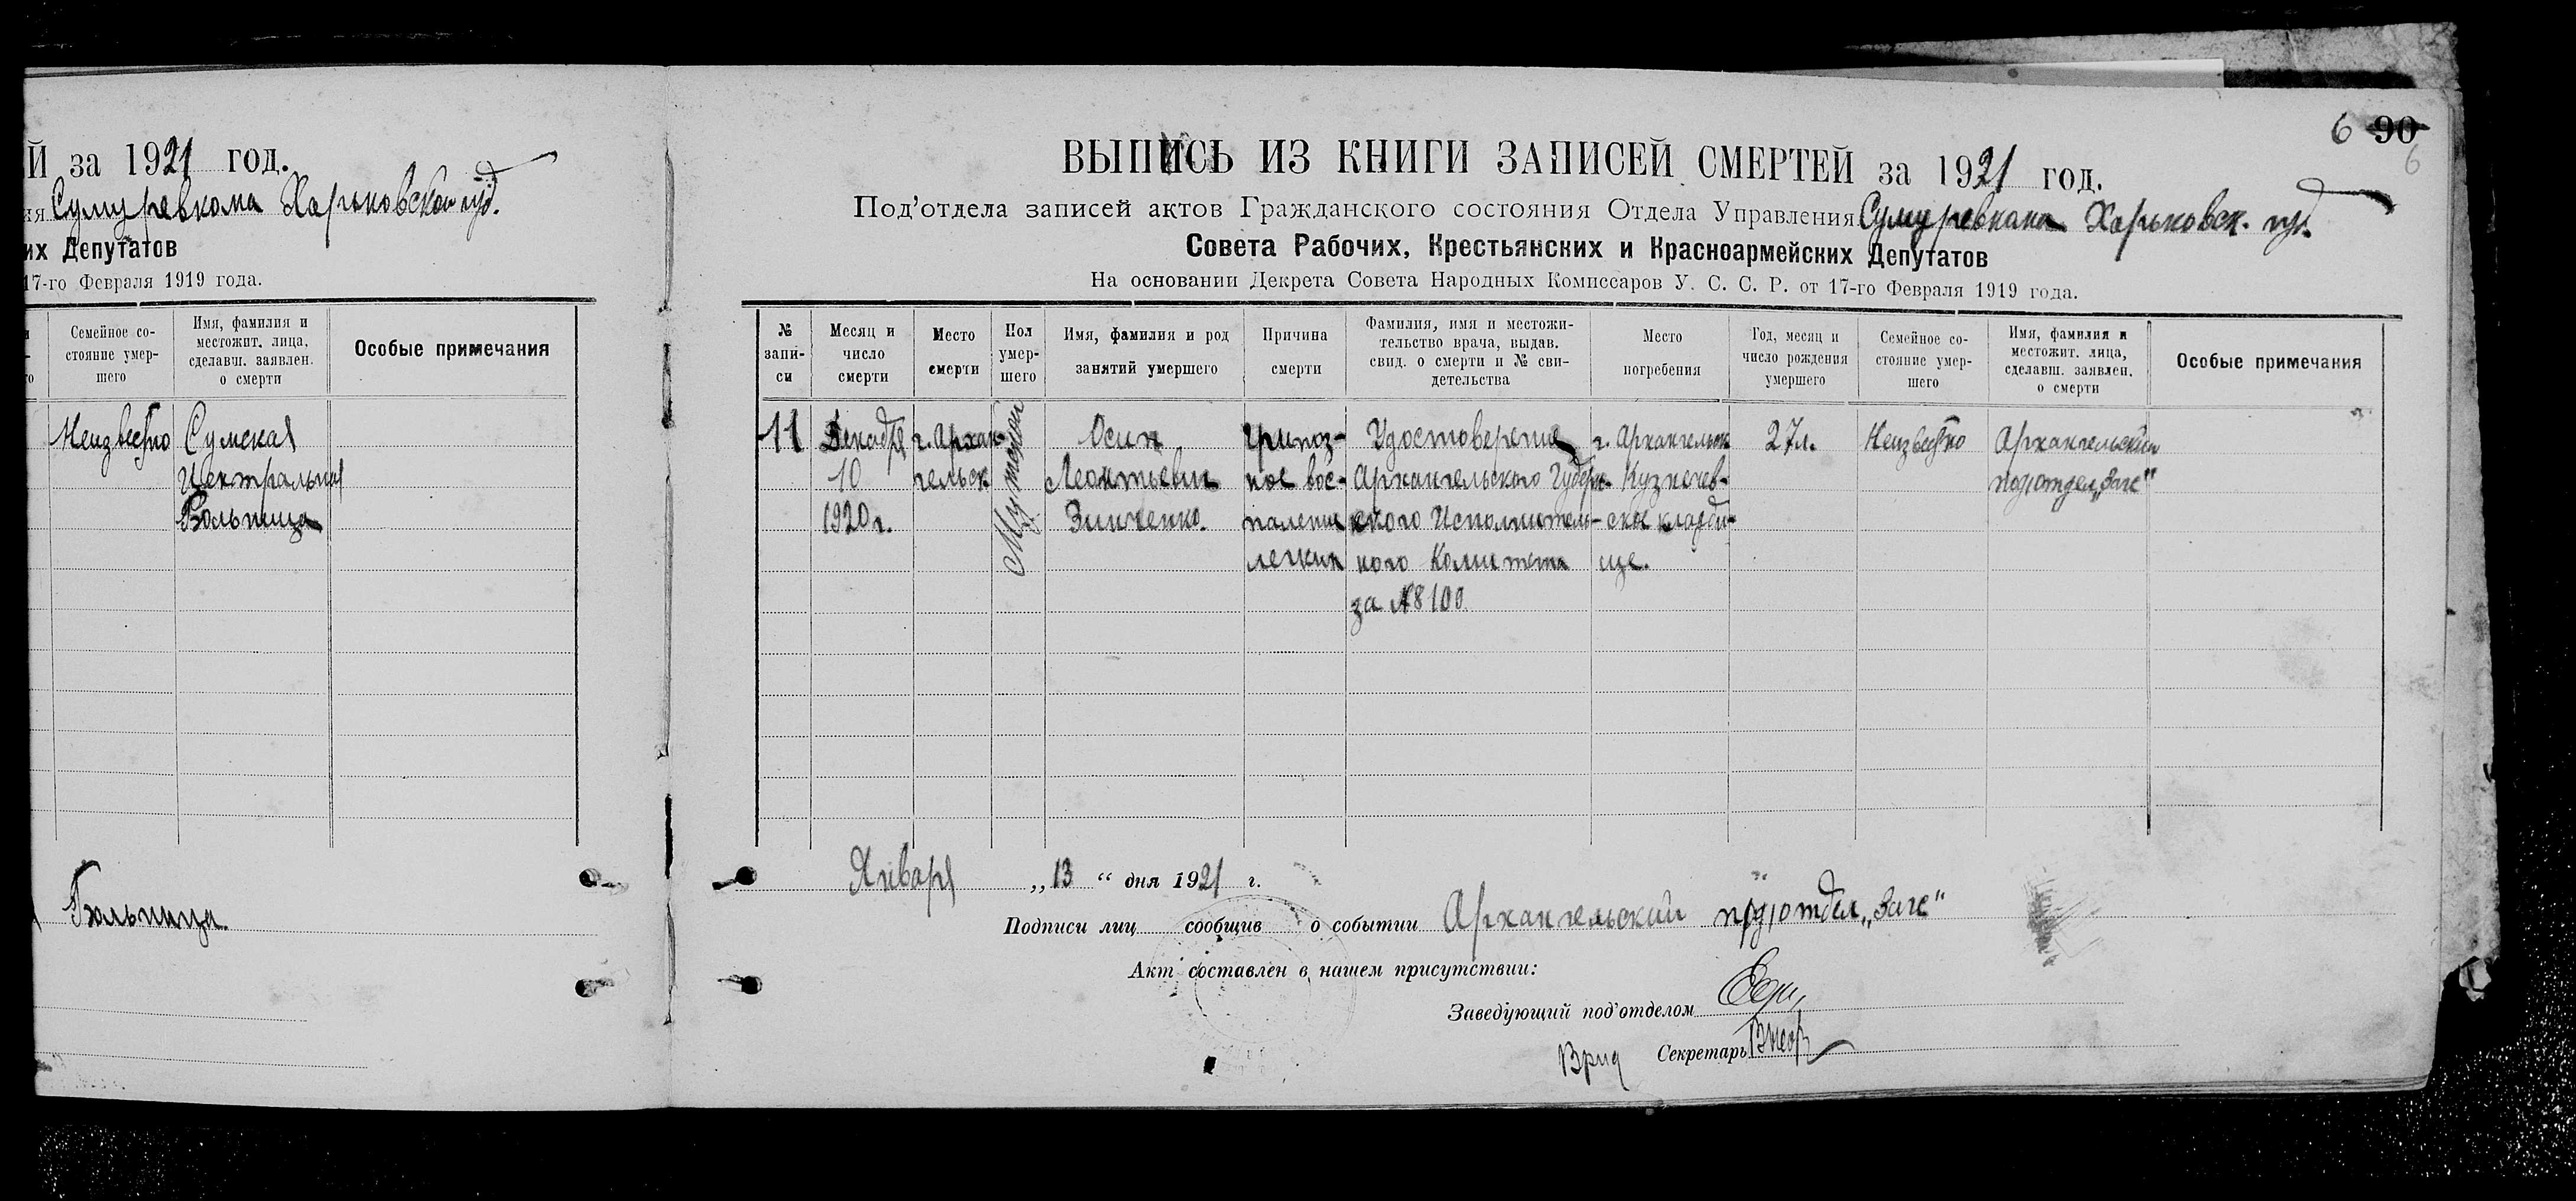 Й за 1921 год.
ия Сумуревкома Харьковской губ.
их Депутатов
17-го Февраля 1919 года.
Семейное со-
стояние умер-
шего
Имя, фамилия и
местожит. лица,
сделавш. заявлен.
о смерти
Особые примечания
Неизвестно
Сумская
Центральная
Больница
Больница.
6 90
6
ВЫПИСЬ ИЗ КНИГИ ЗАПИСЕЙ СМЕРТЕЙ за 1921 год.
Под'отдела записей актов Гражданского состояния Отдела Управления Сумуревкома Харьковск. губ.
Совета Рабочих, Крестьянских и Красноармейских Депутатов
На основании Декрета Совета Народных Комиссаров У. С. С. Р. от 17-го Февраля 1919 года.
№
запи-
си
Месяц и
число
смерти
Место
смерти
Пол
умер-
шего
Имя, фамилия и род
занятий умершего
Причина
смерти
Фамилия, имя и местожи-
тельство врача, выдав.
свид. о смерти и № сви-
детельства
Место
погребения
Год, месяц и
число рождения
умершего
Семейное со-
стояние умер-
шего
Имя, фамилия и
местожит. лица,
сделавш. заявлен.
о смерти
Особые примечания
11
Декабря
10
1920 г.
г. Архан-
гельск
Мужской
Осип
Леонтьевич
Зинченко.
Грипоз-
ное вос-
паление
легких
Удостоверение
Архангельского Губерн-
ского Исполнитель-
ного Комитета
за №8100
г. Архангельск
Кузнечев-
ское кладби-
ще.
27 л.
Неизвестно
Архангельский
подотдел „Загс"
Января „13" дня 1921 г.
Подписи лиц сообщив о событии Архангельский подотдел „Загс"
Акт составлен в нашем присутствии:
Заведующий под'отделом
Врид Секретарь